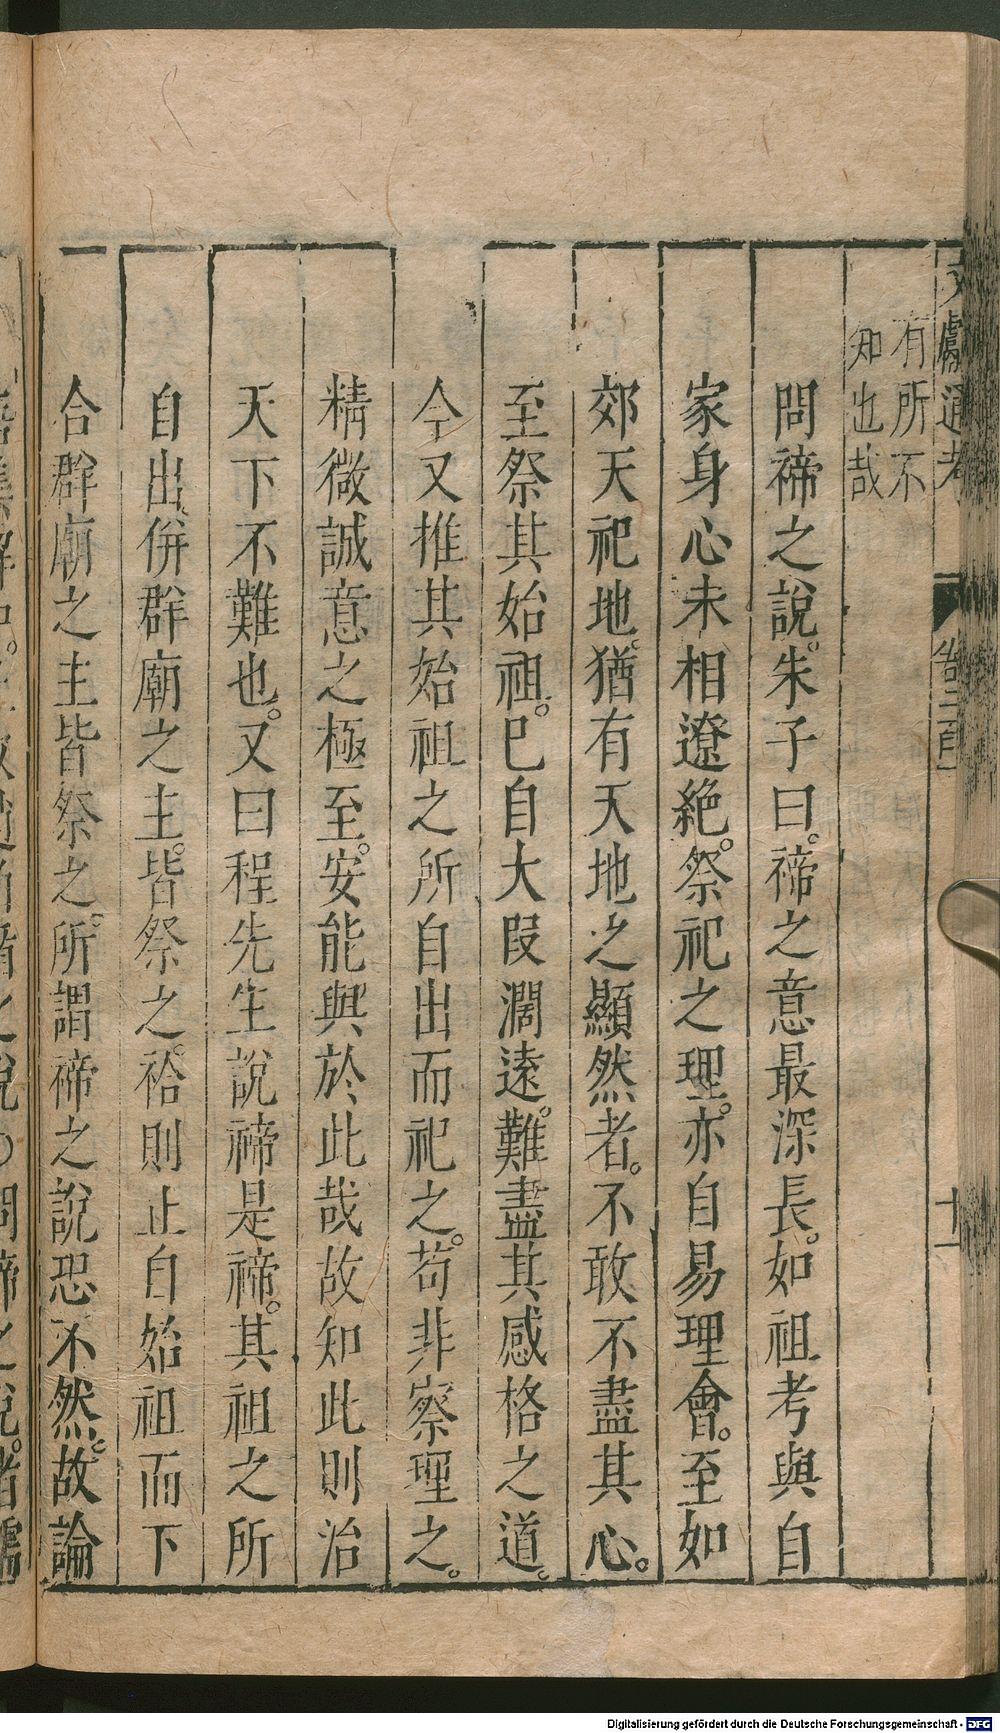 文獻通考 卷一百一 十一
有所不
知也哉
問禘之說。朱子曰。禘之意最深長。如祖考與自
家身心未相遼絶。祭祀之理。亦自易理會。至如
郊天祀地。猶有天地之顯然者。不敢不盡其心。
至祭其始祖。已自大段濶遠。難盡其感格之道。
今又推其始祖之所自出而祀之。苟非察理之。
精微誠意之極至。安能與於此哉故知此則治
天下不難也。又曰程先生說禘是禘。其祖之所
自出。併群廟之主。皆祭之。祫則止自始祖而下
合群廟之主皆祭之。所謂禘之說恐不然。故論
Digitalisierung gefördert durch die Deutsche Forschungsgemeinschaft - DFG